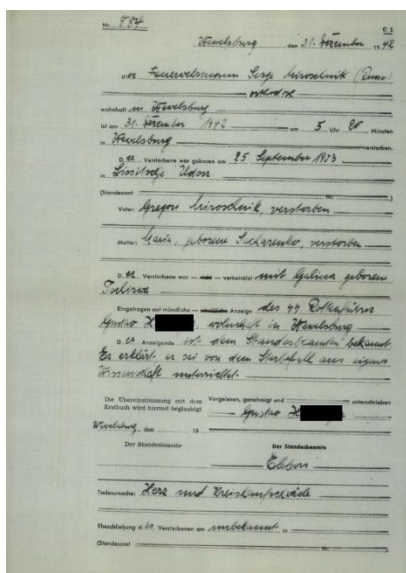 Nr. 884
C 1
Wewelsburg, den 31. Dezember 1942
Der Feuerwehrmann Serge Miroschnik (Russe)
orthodox
wohnhaft in Wewelsburg
ist am 31. Dezember 1942 um 5 Uhr 20 Minuten
in Wewelsburg verstorben.
D er Verstorbene war geboren am 25. September
in
(Standesamt Nr. )
Vater: Gregori Miroschnik, verstorben
Mutter: Maria, geborene verstorben
D er Verstorbene war — nicht — verheiratet mit Galina geboren
Eingetragen auf mündliche — Anzeige des SS Rottenführers
Gustav H wohnhaft in Wewelsburg
D er Anzeigende ist dem Standesbeamten bekannt.
Er erklärt er sei von dem Sterbefall aus eigener
Wissenschaft unterrichtet.
Die Übereinstimmung mit dem
Erstbuch wird hiermit beglaubigt
Vorgelesen, genehmigt und unterschrieben
Gustav H
Wewelsburg, den 19
Der Standesbeamte
Der Standesbeamte
Todesursache: Herz und Kreislaufschwäche
Eheschließung des Verstorbenen am unbekannt in
(Standesamt Nr. )